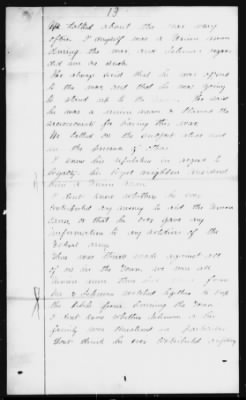 13
We talked about the war very
often. I myself was a Union man
during the war and Johnson regar-
ded me as such.
He always said that he was opposed
to the war and that he was going
to stand up to the He said
he was a Union man & blamed the
secessionists for bringing the war.
We talked on the subject alone and
in the presence of others
I know his reputation in regard to
loyalty. His loyal neighbors considered
him a Union man
I dont know whether he ever
contributed any money to aid the Union
cause, or that he ever gave any
information to any soldiers of the
Federal army.
There was threats made against all
of us in the town, we were all
Union men then from
&, Johnson watched together to keep
the rebels from burning the town
I dont know whether Johnson or his
family was threatened in particular
I dont think he ever contributed anything